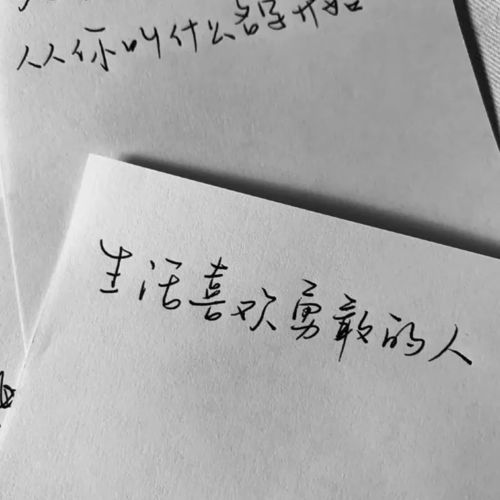 从你叫什么名字开始
生活喜欢勇敢的人